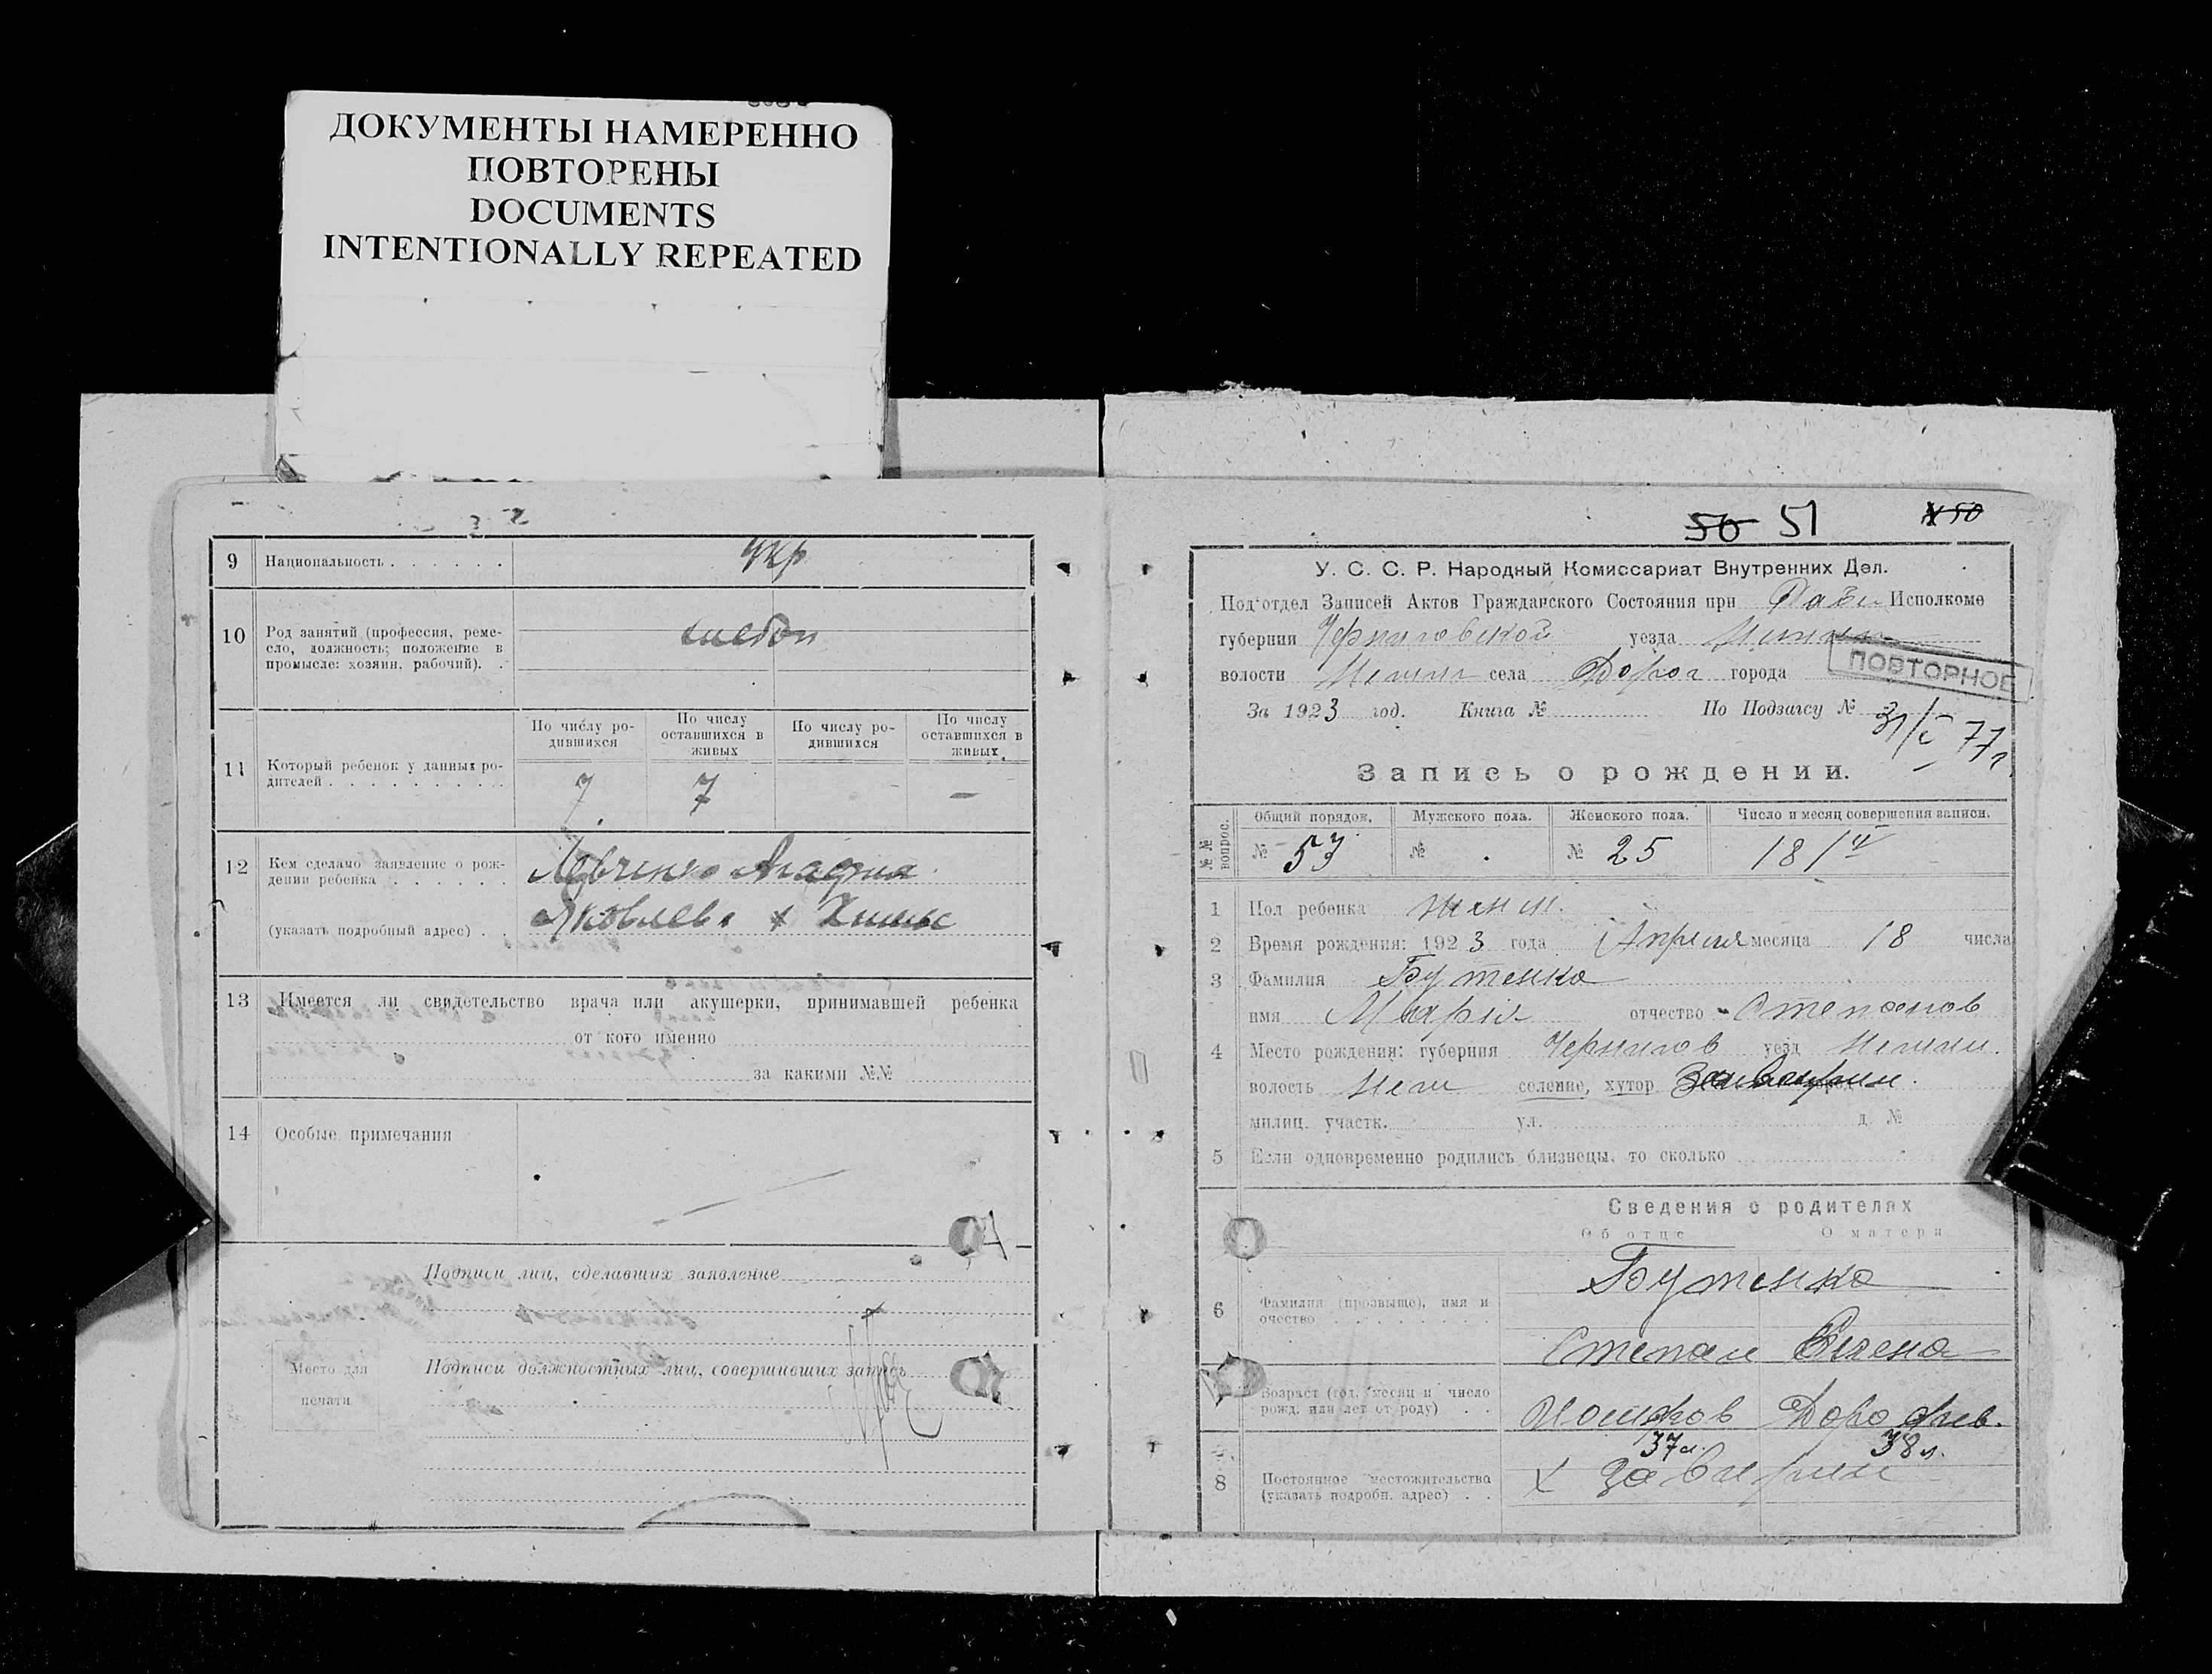 ДОКУМЕНТЫ НАМЕРЕННО
ПОВТОРЕНЫ
DOCUMENTS
INTENTIONALLY REPEATED
9 Национальность . . . . . . укр
10 Род занятий (профессия, реме-
сло, должность; положение в
промысле: хозяин, рабочий). .
11 Который ребенок у данных ро-
дителей . . . . . . . . .
По числу ро-
дившихся
По числу
оставшихся в
живых
По числу ро-
дившихся
По числу
оставшихся в
живых
7 7 —
12 Кем сделано заявление о рож-
дении ребенка . . . . . .
Левченко
(указать подробный адрес) . .
Яковлева х
13 Имеется ли свидетельство врача или акушерки, принимавшей ребенка
от кого именно
за какими №№
14 Особые примечания
Подписи лиц, сделавших заявление
Место для
печати
Подписи должностных лиц, совершивших запись
50 51 50
У. С. С. Р. Народный Комиссариат Внутренних Дел.
Под'отдел Записей Актов Гражданского Состояния при Исполкоме
губернии Черниговской уезда
волости села города
ПОВТОРНОЕ
За 1923 год. Книга № По Подзагсу №
77г
Запись о рождении.
№№ вопрос.
Общий порядок. Мужского пола. Женского пола. Число и месяц совершения записи.
№ 53 № № 25 18/IV
1 Пол ребенка женск.
2 Время рождения: 1923 года Апреля месяца 18 числа
3 Фамилия Бутенко
имя Мария отчество Степанов
4 Место рождении: губерния Чернигов уезд Нежин.
волость Неж селение, хутор
милиц. участк. ул. д. №
5 Если одновременно родились близнецы, то сколько
Сведения о родителях
Об отце О матери
6 Фамилия (прозвище), имя и
очество . . . . . . . .
Бутенко
Степан Елена
Возраст (год, месяц и число
рожд. или лет от роду) . .
Дорофив.
37 л. 38 л.
8 Постоянное местожительство
(указать подробн. адрес) . .
х